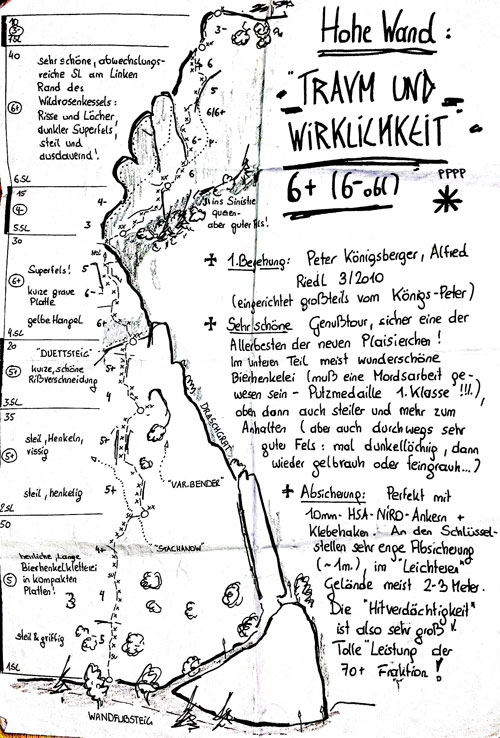 Hohe Wand:
"TRAUM UND
WIRKLICHKEIT"
6+ (6- obl)
PPPP
1. Begehung: Peter Königsberger, Alfred
Riedl 3/2010
(eingerichtet großteils vom Königs-Peter)
Sehr schöne Genußtour, sicher eine der
Allerbesten der neuen Plaisierchen!
Im unteren Teil meist wunderschöne
Bierhenkelei (muß eine Mordsarbeit ge-
wesen sein - Putzmedaille 1. Klasse !!!),
oben dann auch steiler und mehr zum
Anhalten (aber auch durchwegs sehr
guter Fels: mal dunkellöchrig, dann
wieder gelbrauh oder feingrauh...)
Absicherung: Perfekt mit
10mm- HSA-NIRO-Ankern +
Klebehaken. An den Schlüssel-
stellen sehr enge Absicherung
(~1m), im "Leichteren"
Gelände meist 2-3 Meter.
Die "Hitverdächtigkeit"
ist also sehr groß!
Tolle Leistung der
70+ Fraktion!
10
3-
7SL
40
sehr schöne, abwechslungs-
reiche SL am Linken
Rand des
Wildrosenkessels:
Risse und Löcher,
dunkler Superfels,
steil und
ausdauernd!
6+
6.SL
15
4-
5.SL
30
Superfels!
6+
kurze graue
Platte
gelbe Hangel
4.SL
20
"DUETTSTEIG"
5+
kurze, schöne
Rißverschneidung
3.SL
35
steil, Henkeln,
rissig
5+
steil, henkelig
2.SL
50
herrliche, lange
Bierhenkelkletterei
in kompakten
Platten!
5
steil & griffig
1SL
3-
4
6
5
6/6+
6-
6
4-
3
ins Sinistre
queren-
aber guter Fels!
5
6-
6+
5+
5+
5+
4+
4
3
5
DRASCHGRAT
"VAR. BENDER"
"STACHANOW"
WANDFUßSTEIG